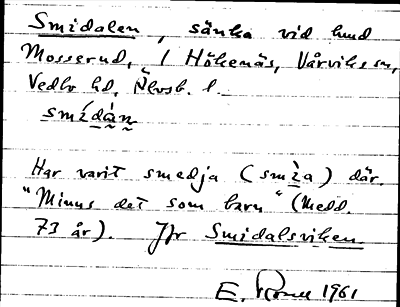 Smidalen, sänka vid lund
Mosserud, / Hökenäs, Vårviks sn,
Vedbo hd, Älvsb. l.
smídàn
Har varit smedja (smìa) där.
"Minns det som barn" (Medd.
73 år). Jfr Smidalsviken.
E. 1961